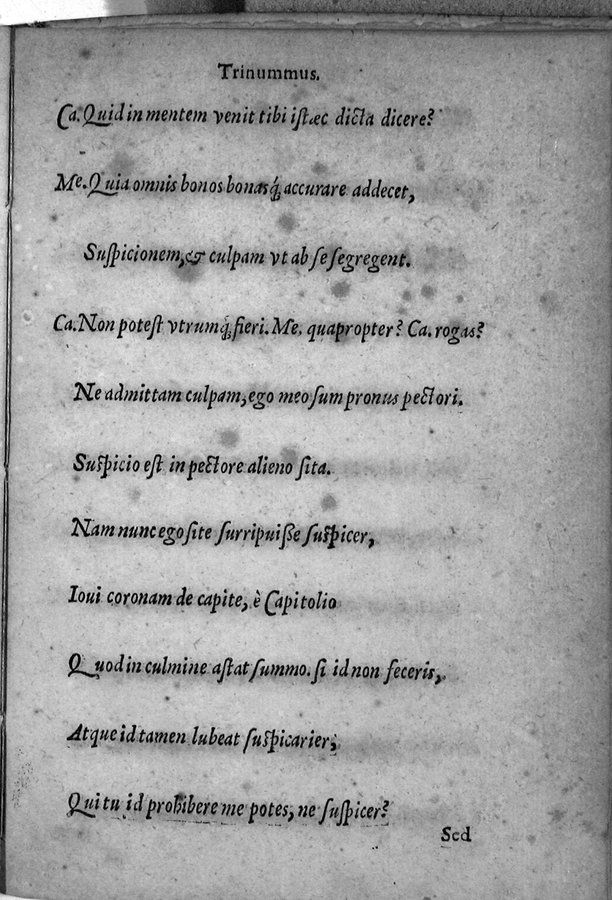 Trinummus.
Ca. Quid in mentem venit tibi iſtæc dicta dicere?
Me. Quia omnis bonos bonasq́; accurare addecet,
Suſpicionem, & culpam vt ab ſe ſegregent.
Ca. Non poteſt vtrumq́; fieri. Me. quapropter? Ca. rogas?
Ne admittam culpam, ego meo ſum pronus pectori.
Suſpicio eſt in pectore alieno ſita.
Nam nunc ego ſi te ſurripuiſſe ſuſpicer,
Ioui coronam de capite, è Capitolio
Quod in culmine aſtat ſummo. ſi id non feceris,
Atque id tamen lubeat ſuſpicarier,
Qui tu id prohibere me potes, ne ſuſpicer?
Sed